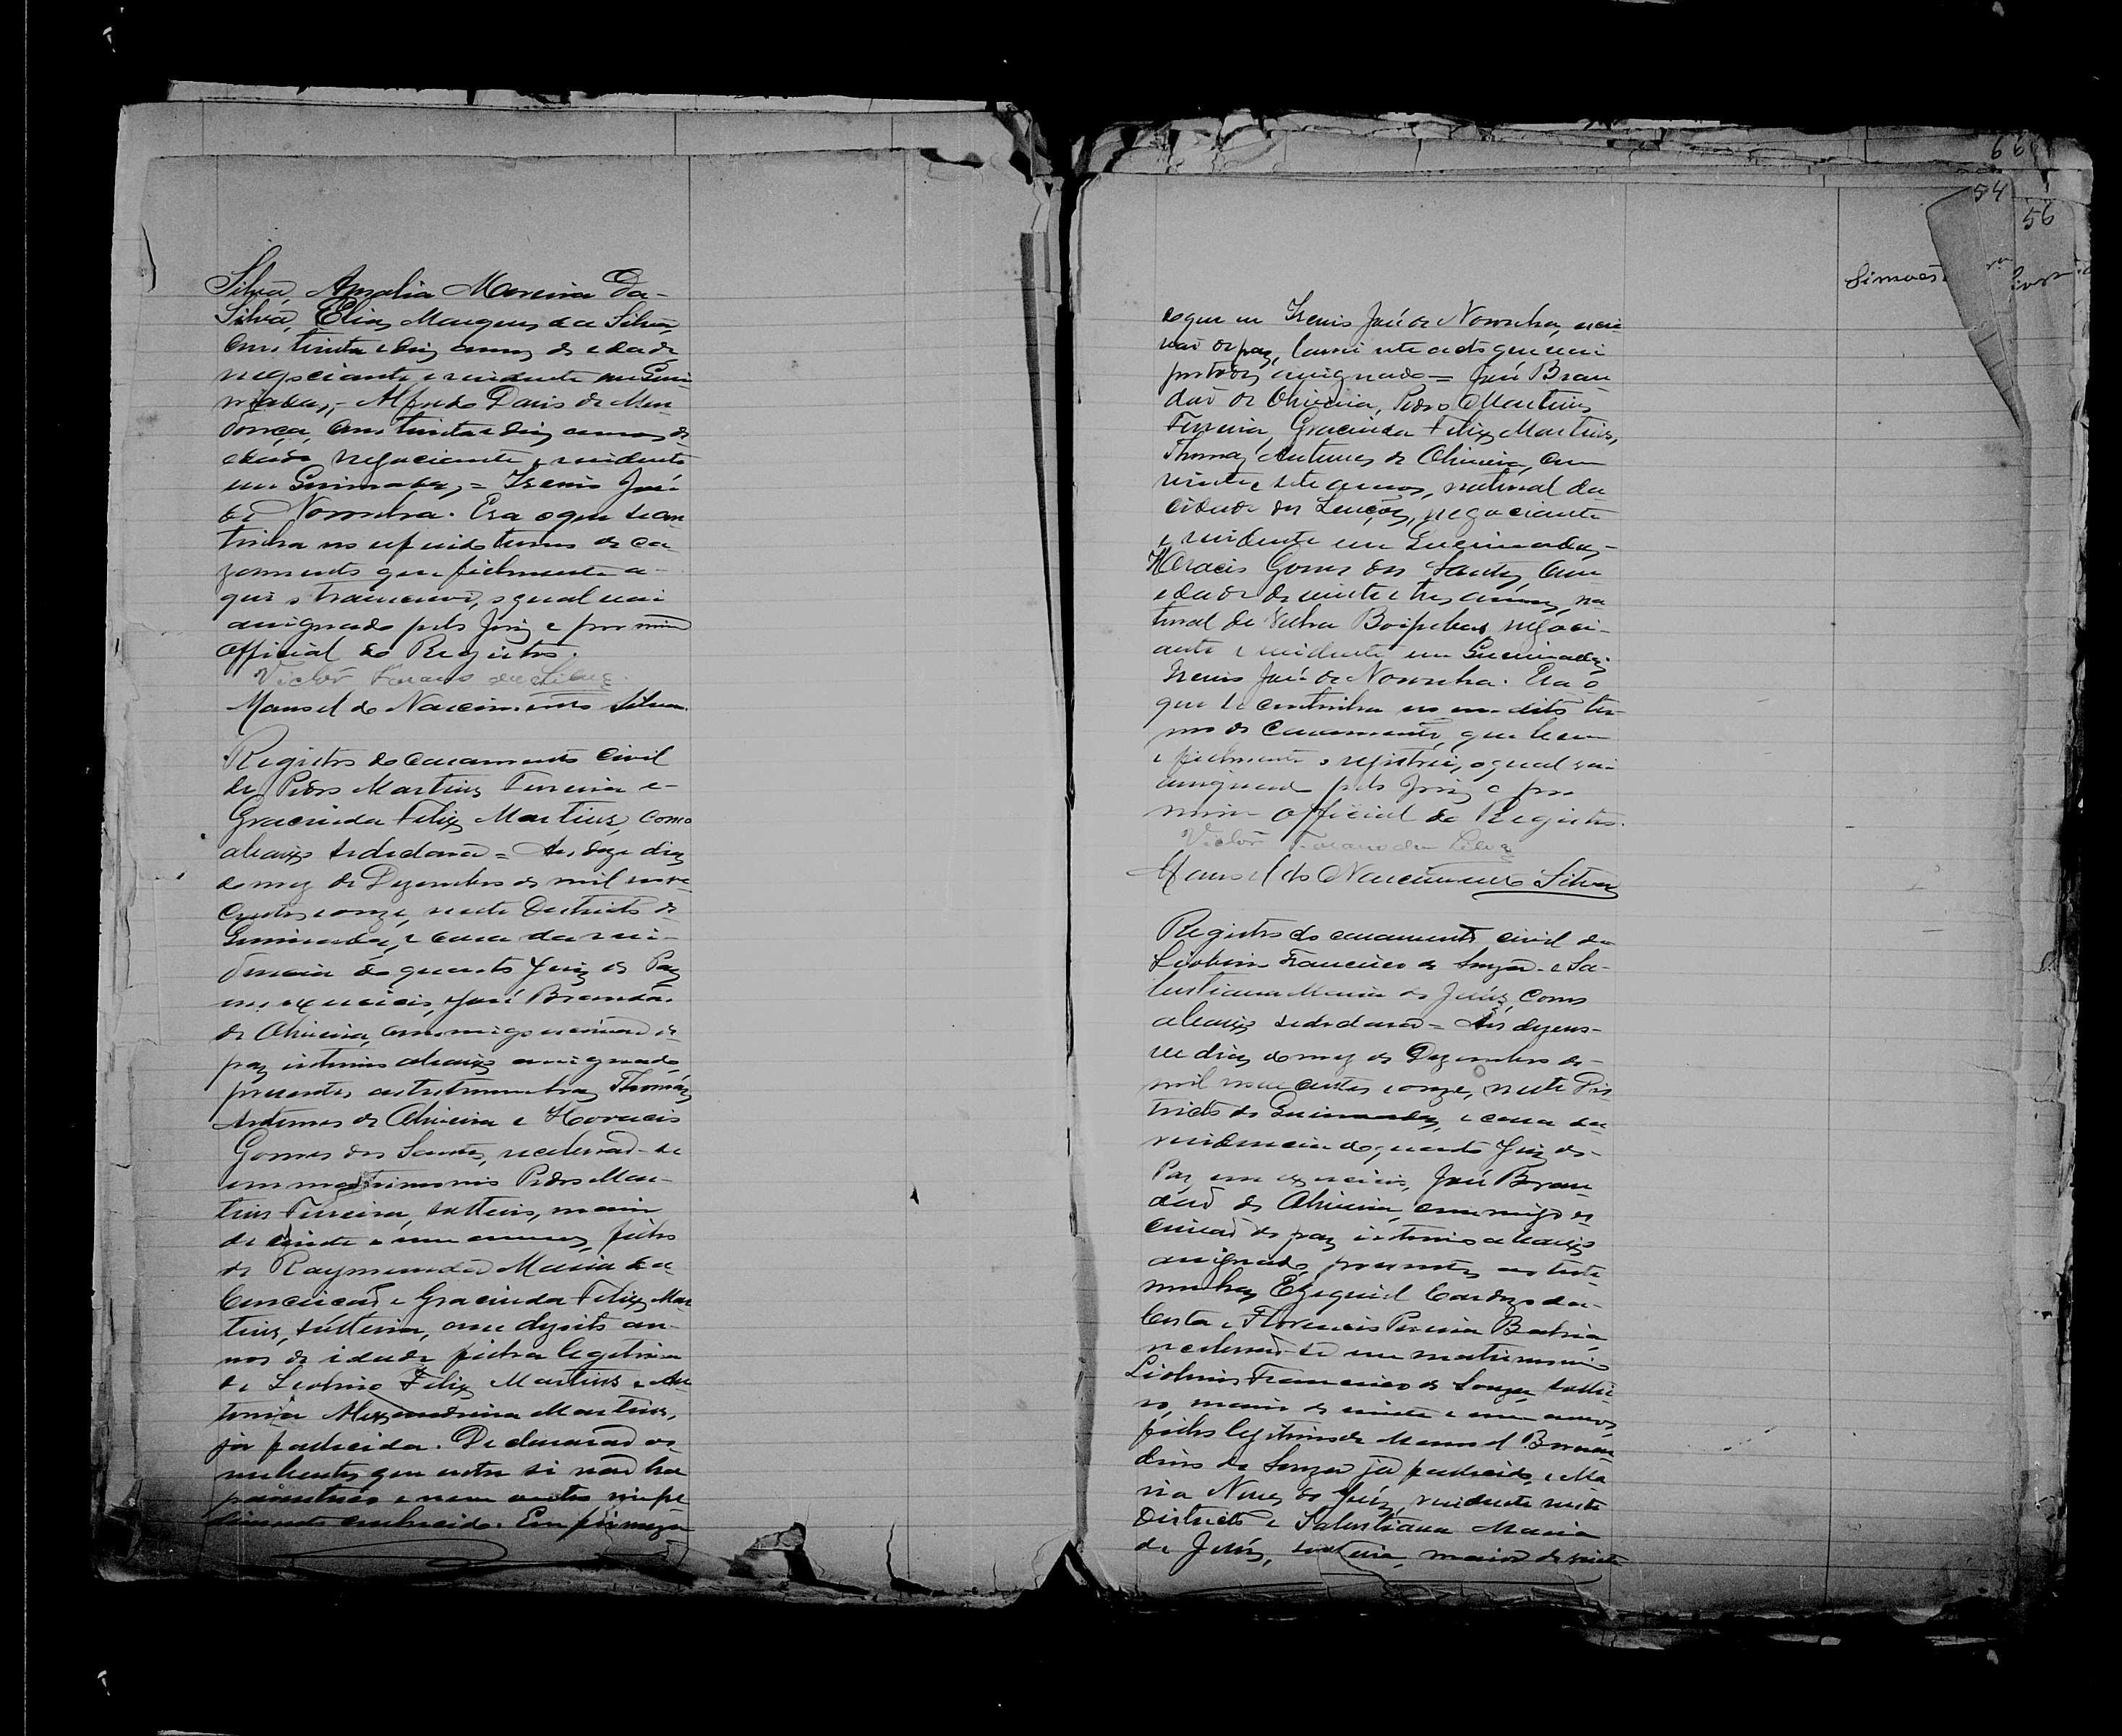 Silva, Amalia Moreira da-
Silva, Elias Marques da Silva,
com trinta e dois annos de edade
negociante e residente em Quei-
madas,- Alfredo Daris de Men-
donça, com trinta e dois annos de
edade negociante e residente
em Queimadas, = Irenio José
de Noronha. Era o que se con
tinha no referido termo de ca-
zamento que fielmente a-
qui o transcrevi, o qual vai
assignado pelo Juiz e por mim
Official do Registro.
Manoel do Nascimento Silva.
Registro do casamento civil
de Pedro Martins Ferreira e-
Gracinda Felix Martins, como
abaixo se declara = Aos doze dias
do mez de Dezembro de mil nove
centos e onze, neste Districto de
Queimadas, e casa da resi-
dencia do quarto Juiz de Paz
em exercicio, José Brandão
de Oliveira, commigo escrivão de
paz interino abaixo assignado,
presentes as testemunhas Thomáz
Antunes de Oliveira e Horacio
Gomes dos Santos, receberão-se
em matrimonio Pedro Mar-
tins Ferreira, solteiro, maior
de vinte e um annos, filho
de Raymunda Maria da
Conceicão e Gracinda Felix Mar
tins, solteira, com dezoito an-
nos de idade filha legitima
de Leolino Felix Martins e An
tonia Alexandrina Martins,
já fallecida. Declararão os
nubentes que entre si não ha
parentesco e nem outro impe
dimento conhecido. Em firmeza
66
54
56
Simões
do que eu Irenio José de Noronha, escri
vão de paz, lavrei este acto que vai
por todos assignado = José Bran
dão de Oliveira, Pedro Martins
Ferreira, Gracinda Felix Martins,
Thomaz Antunes de Oliveira, com
vinte e sete annos, natural da
cidade dos Lençóes, negociante
e residente em Queimadas-
Horacio Gomes dos Santos, com
edade de vinte e tres annos, na
tural de Velha Boipeba, negoci-
ante e residente em Queimadas.
Irenio José de Noronha. Era o
que se continha no dito ter
mo de casamento, que bem
e fielmente o registrei, o qual vai
assignado pelo Juiz e por
mim Official do Registro.
Manoel do Nascimento Silva
Registro do casamento civil de
Leolino Francisco de Souza e Sa-
lustiana Maria de Jesús, como
abaixo se declara = Aos dezeno-
ve dias do mez de Dezembro de
mil nove centos e onze, neste Dis
tricto de Queimadas, e casa da
residencia do quarto Juiz de
Paz em exercicio, José Bran
dão de Oliveira, commigo es
crivão de paz interino abaixo
assignado, presentes as teste
munhas Ezequiel Cardozo da-
Costa e Florencio Pereira Bahia,
receberão-se em matrimonio
Leolino Francisco de Souza soltei
ro, maior de vinte e um annos,
filho legitimo de Manoel Bernar
dino de Souza já fallecido, e Ma
ria Nunes de Jesús, residente neste
Districto e Salustiana Maria
de Jesús, solteira, maior de vinte